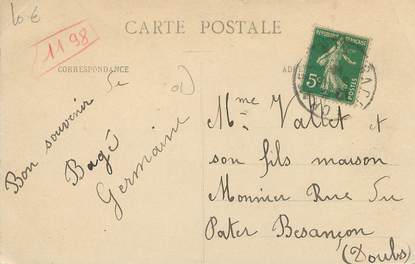 10 €
1198
CARTE POSTALE
CORRESPONDANCE
Bon souvenir de
Bagé
Germaine
REPUBLIQUE FRANÇAISE
5c
POSTES
Mme Vallet et
son fils maison
Monnier Rue du
Pater Besançon
(Doubs)